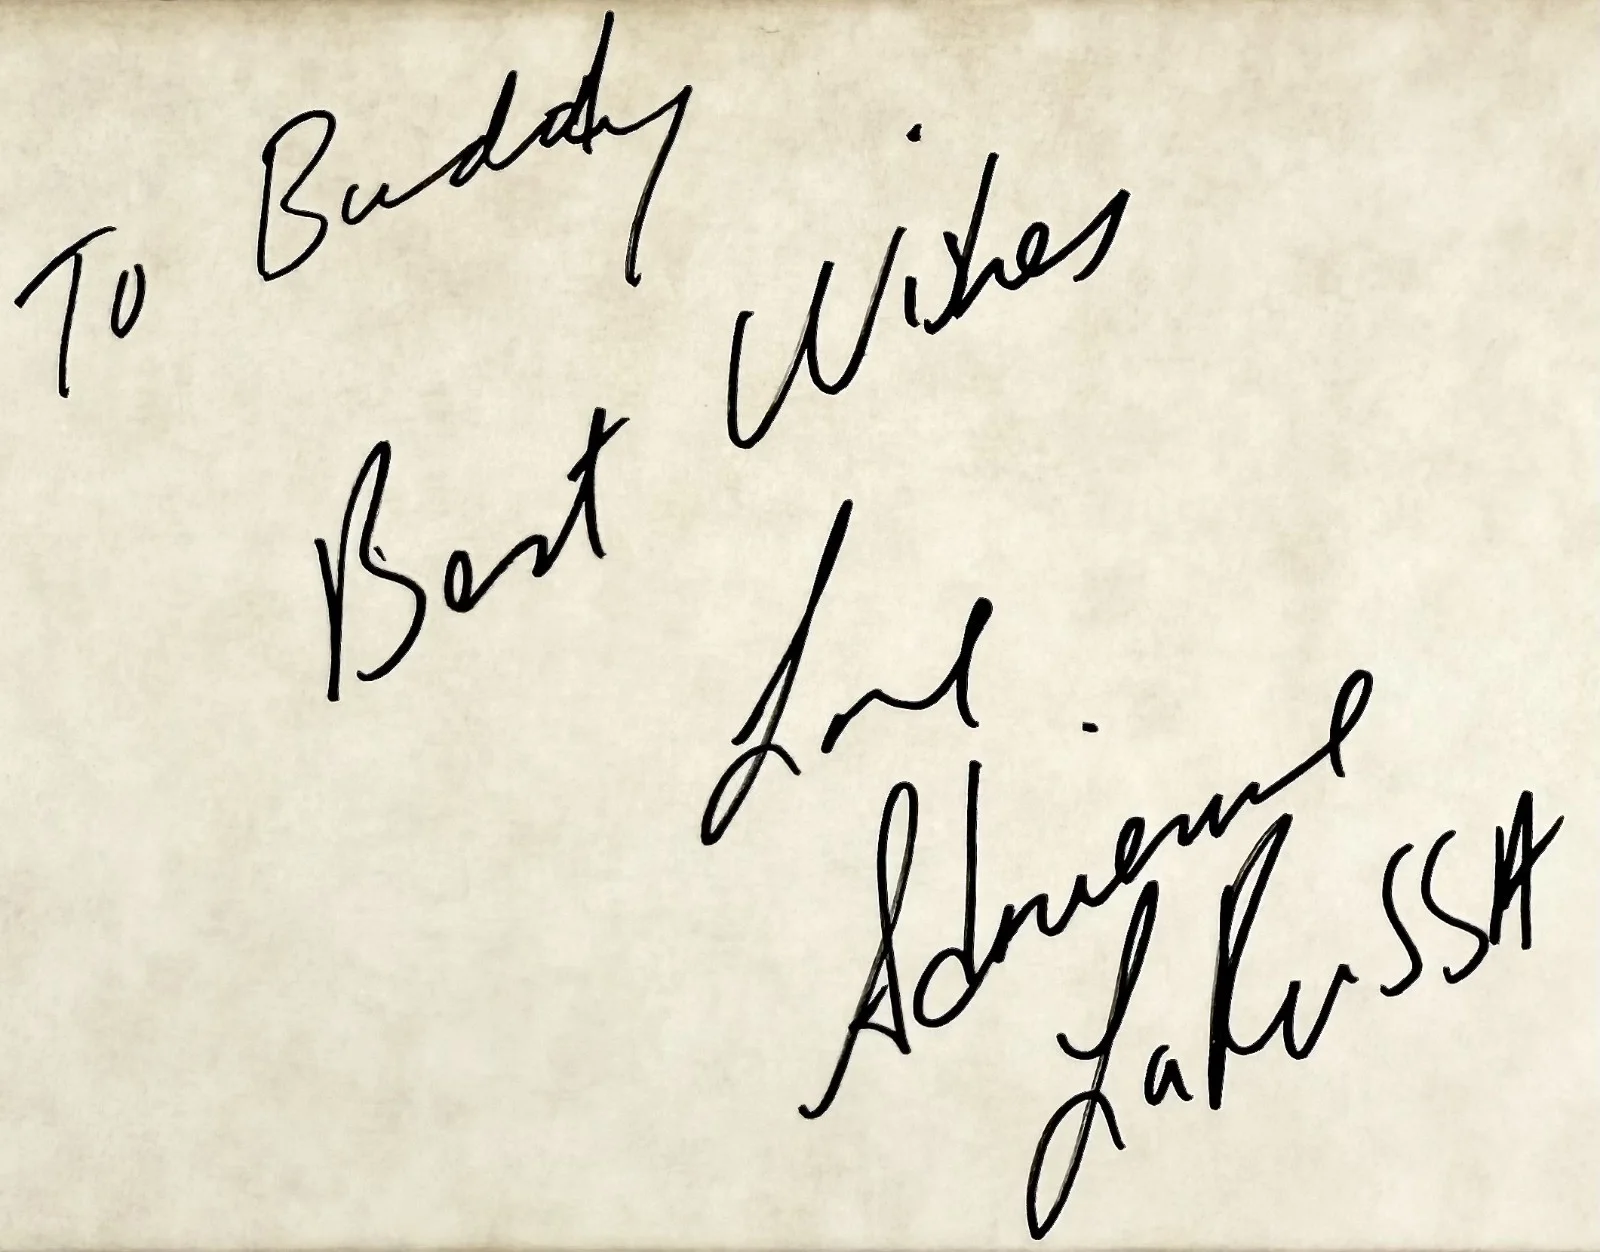 To Buddy
Best Wishes
Love
Adrienne
LaRussa